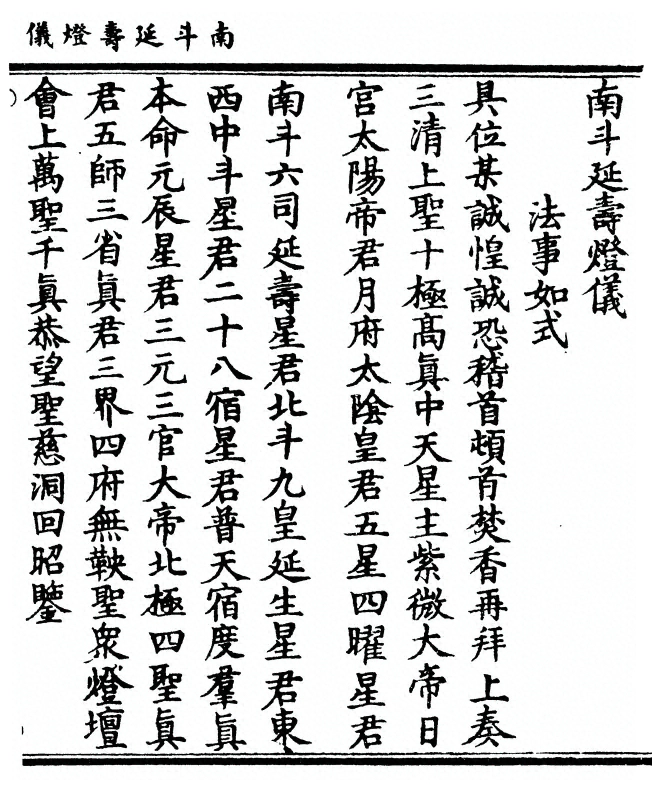 南斗延壽燈儀
南斗延壽燈儀
法事如式
具位某誠惶誠恐稽首頓首焚香再拜上奏
三清上聖十極髙眞中天星主紫微大帝日
宮太陽帝君月府太陰皇君五星四曜星君
南斗六司延壽星君北斗九皇延生星君東
西中斗星君二十八宿星君普天宿度羣眞
本命元辰星君三元三官大帝北極四聖眞
君五師三省眞君三界四府無鞅聖衆燈壇
會上萬聖千眞恭望聖慈洞回昭鑒